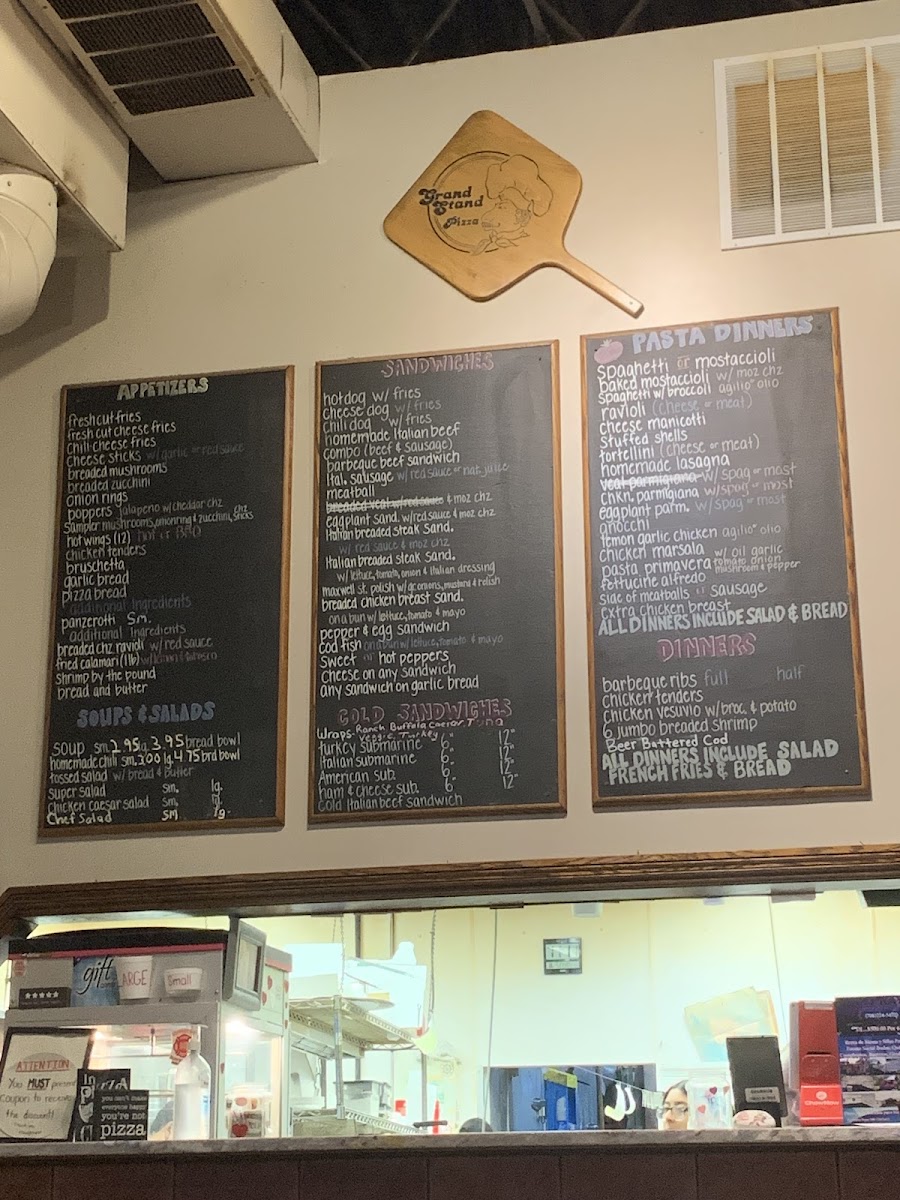 Grand
Stand
Pizza
APPETIZERS
fresh cut fries
fresh cut cheese fries
chili cheese fries
cheese sticks w/garlic or red sauce
breaded mushrooms
breaded zucchini
onion rings
poppers jalapeno w/cheddar chz
sampler mushrooms, onion ring & zucchini, chz sticks
hot wings (12) hot or BBQ
chicken tenders
bruschetta
garlic bread
pizza bread
additional ingredients
panzerotti Sm.
additional ingredients
breaded chz ravioli w/ red sauce
fried calamari (1lb)
shrimp by the pound
bread and butter
SOUPS & SALADS
soup sm. 2.95 lg. 3.95 bread bowl
homemade chili sm. 3.00 lg. 4.75 brd bowl
tossed salad w/ bread & butter
super salad sm. lg.
chicken caesar salad sm. lg.
Chef Salad SM lg.
SANDWICHES
hotdog w/ fries
cheese dog w/ fries
chili dog w/ fries
homemade Italian beef
combo (beef & sausage)
barbeque beef sandwich
Ital. sausage w/ red sauce or nat. juice
meatball
breaded veal w/red sauce & moz chz
eggplant sand. w/red sauce & moz chz
Italian breaded steak sand.
w/ red sauce & moz chz
Italian breaded steak sand.
w/ lettuce, tomato, onion & Italian dressing
maxwell st. polish w/ gr. onions, mustard & relish
breaded chicken breast sand.
on a bun w/ lettuce, tomato & mayo
pepper & egg sandwich
cod fish on a bun w/ lettuce, tomato & mayo
sweet or hot peppers
cheese on any sandwich
any sandwich on garlic bread
COLD SANDWICHES
Wraps- Ranch, Buffalo, Caesar, Tuna
Veggie, Turkey
turkey submarine 6" 12"
Italian submarine 6" 12"
American sub. 6" 12"
ham & cheese sub. 6" 12"
cold Italian beef sandwich
PASTA DINNERS
spaghetti or mostaccioli
baked mostaccioli w/ moz chz
spaghetti w/ broccoli aglio olio
ravioli (cheese or meat)
cheese manicotti
stuffed shells
tortellini (cheese or meat)
homemade lasagna
veal parmigiana w/ spag or most
chkn. parmigiana w/spag or most
eggplant parm. w/ spag or most
gnocchi
lemon garlic chicken aglio olio
chicken marsala
pasta primavera w/ oil garlic tomato onion mushroom & pepper
fettucine alfredo
side of meatballs or sausage
extra chicken breast
ALL DINNERS INCLUDE SALAD & BREAD
DINNERS
barbeque ribs full half
chicken tenders
chicken vesuvio w/ broc. & potato
6 jumbo breaded shrimp
Beer Battered Cod
ALL DINNERS INCLUDE SALAD
FRENCH FRIES & BREAD
gift
LARGE
Small
ATTENTION
You MUST present
coupon to receive
the discount!
you can't make
everyone happy
you're not
pizza